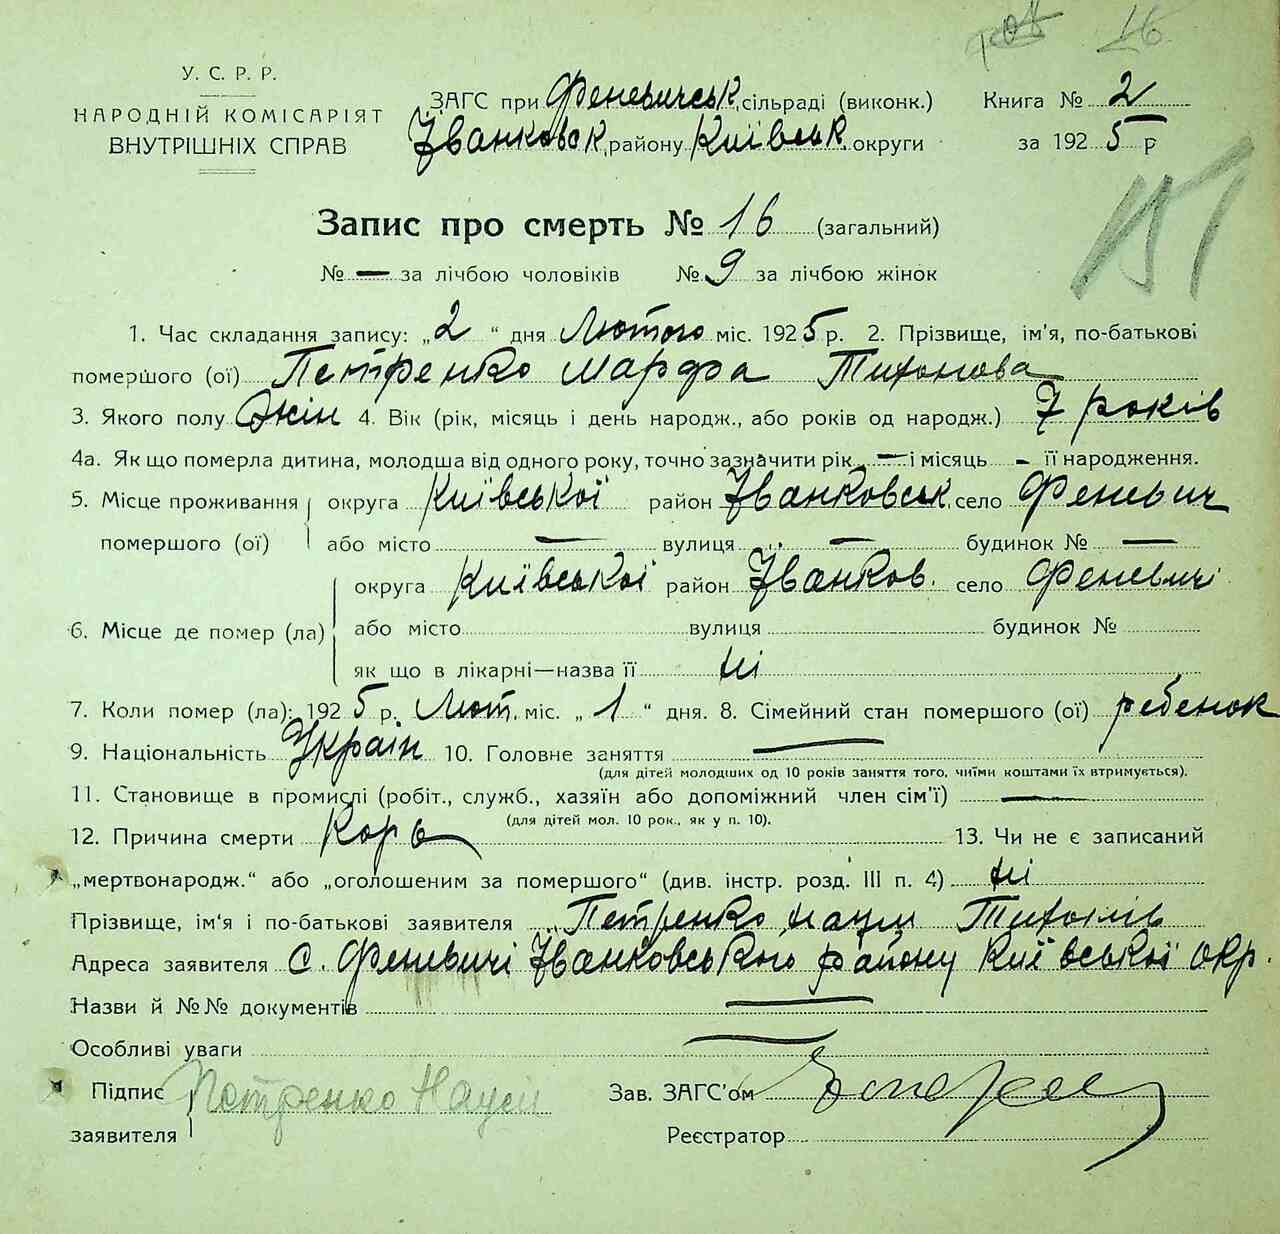 16
У. С. Р. Р.
НАРОДНІЙ КОМІСАРІЯТ
ВНУТРІШНІХ СПРАВ
ЗАГС при Феневичськ. сільраді (виконк.)
Іванковськ. району Київськ. округи
Книга № 2
за 1925 р
151
Запис про смерть № 16 (загальний)
№ — за лічбою чоловіків № 9 за лічбою жінок
1. Час складання запису: „2“ дня Лютого міс. 1925 р. 2. Прізвище, ім'я, по-батькові
помершого (ої) Петренко Марфа Тихонова
3. Якого полу жін 4. Вік (рік, місяць і день народж., або років од народж.) 7 років
4а. Як що померла дитина, молодша від одного року, точно зазначити рік — і місяць - її народження.
5. Місце проживання округа Київської район Іванковськ. село Феневич
помершого (ої) або місто — вулиця — будинок № —
округа Київської район Іванков. село Феневичі
6. Місце де помер (ла) або місто вулиця будинок №
як що в лікарні—назва її ні
7. Коли помер (ла): 1925 р. Лют. міс. „1“ дня. 8. Сімейний стан помершого (ої) ребенок
9. Національність Украін 10. Головне заняття —
(для дітей молодших од 10 років заняття того, чиїми коштами їх втримується).
11. Становище в промислі (робіт., служб., хазяїн або допоміжний член сім'ї) —
(для дітей мол. 10 рок., як у п. 10).
12. Причина смерти Корь 13. Чи не є записаний
„мертвонародж.“ або „оголошеним за помершого“ (див. інстр. розд. III п. 4) ні
Прізвище, ім'я і по-батькові заявителя Петренко Наум Тихонів
Адреса заявителя с. Феневичі Іванковського району Київської окр.
Назви й №№ документів —
Особливі уваги —
Підпис Петренко Наум Зав. ЗАГС'ом
заявителя Реєстратор